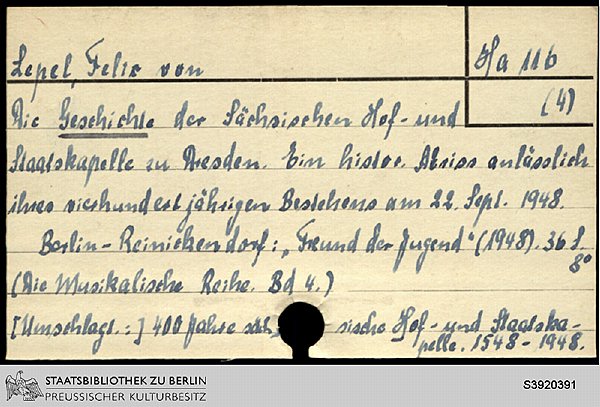 Lepel, Felix von
Ha 116
(4)
Die Geschichte der Sächsischen Hof- und
Staatskapelle zu Dresden. Ein histor. Abriss anlässlich
ihres vierhundertjährigen Bestehens am 22. Sept. 1948.
Berlin-Reinickendorf: „Freund der Jugend" (1948). 36 S.
8°
(Die Musikalische Reihe. Bd 4.)
[Umschlagt.:] 400 Jahre säch sische Hof- und Staatska-
pelle. 1548-1948.
STAATSBIBLIOTHEK ZU BERLIN
PREUSSISCHER KULTURBESITZ
S3920391